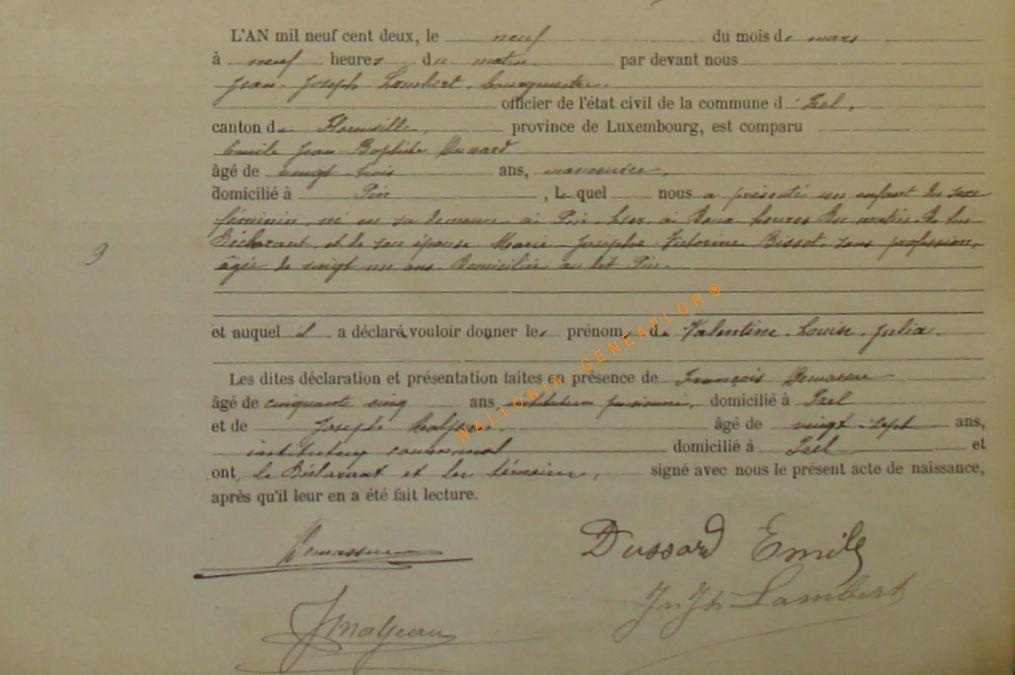 L'AN mil neuf cent deux, le neuf du mois de mars
à neuf heures du matin par devant nous
Jean Joseph Lambert, bourgmestre,
officier de l'état civil de la commune d'Izel,
canton de Florenville, province de Luxembourg, est comparu
Emile Jean Baptiste Dussard
âgé de vingt trois ans, manoeuvre,
domicilié à Pin, lequel nous a présenté un enfant du sexe
féminin, né en sa demeure à Pin, hier, à deux heures du matin de lui
Déclarant, et de son épouse Marie Josèphe Victorine Bissot, sans profession,
âgée de vingt un ans Domiciliée au dit Pin.
3
et auquel il a déclaré vouloir donner les prénoms de Valentine Louise Julia.
Les dites déclaration et présentation faites en présence de François
âgé de cinquante cinq ans instituteur pensionné, domicilié à Izel
et de Joseph âgé de vingt sept ans,
instituteur communal domicilié à Izel et
ont, le Déclarant et les témoins, signé avec nous le présent acte de naissance,
après qu'il leur en a été fait lecture.
Dussard Emile
Jn Jh Lambert
WALLONIA-GENEAFLOR®